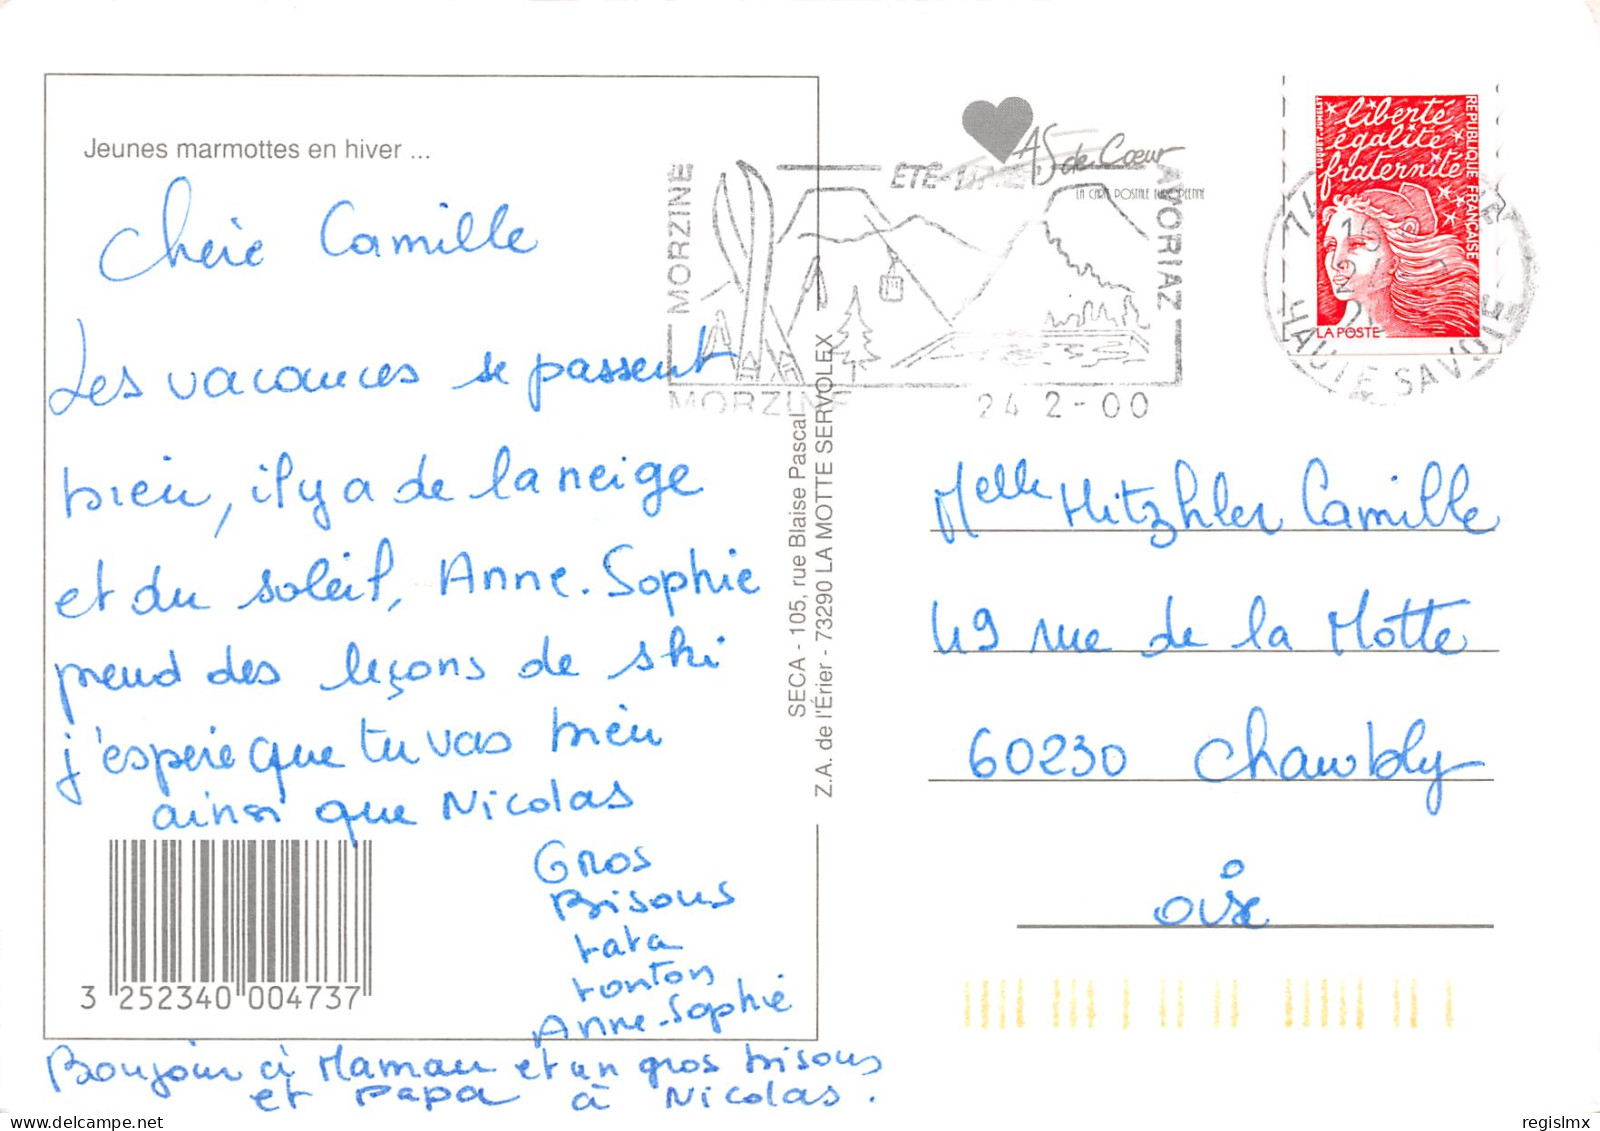 Jeunes marmottes en hiver ...
Chère Camille
Les vacances se passent
bien, il y a de la neige
et du soleil, Anne-Sophie
prend des leçons de ski
j'espère que tu vas bien
ainsi que Nicolas
Gros
Bisous
tata
tonton
Anne-Sophie
Bonjour à Maman et un gros bisous
et Papa à Nicolas.
3 252340 004737
SECA - 105, rue Blaise Pascal
Z.A. de l'Érier - 73290 LA MOTTE SERVOLEX
AS de Cœur
LA CARTE POSTALE EUROPÉENNE
ÉTÉ-
MORZINE
AVORIAZ
MORZINE
24 2-00
liberté
égalité
fraternité
RÉPUBLIQUE FRANÇAISE
LA POSTE
HAUTE SAVOIE
Melle Hitzhler Camille
49 rue de la Motte
60230 Chambly
Oise
regislmx